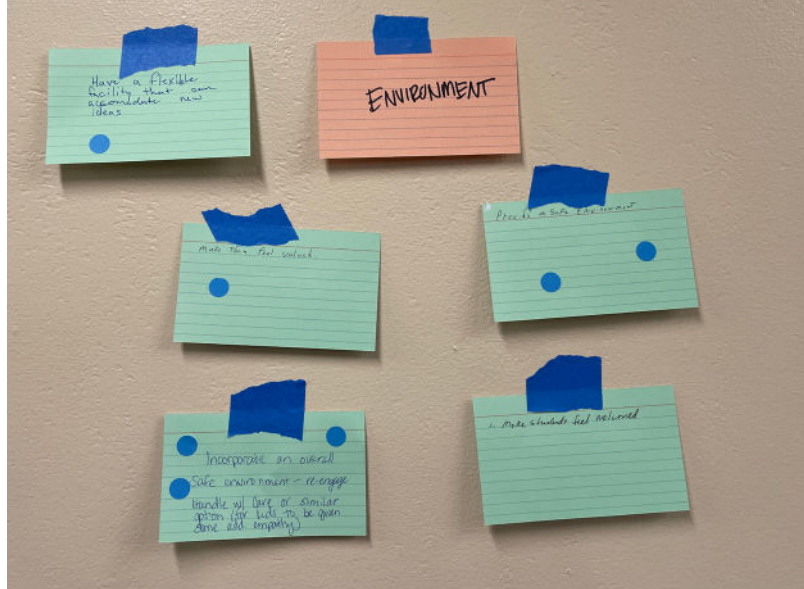 Have a flexible
facility that can
accomodate new
ideas
ENVIRONMENT
Make them feel valued
Provide a Safe Environment
Incorporate an overall
Safe environment - re-engage
Handle w/ Care or similar
option (for kids to be given
some add. empathy)
1. Make students feel welcomed